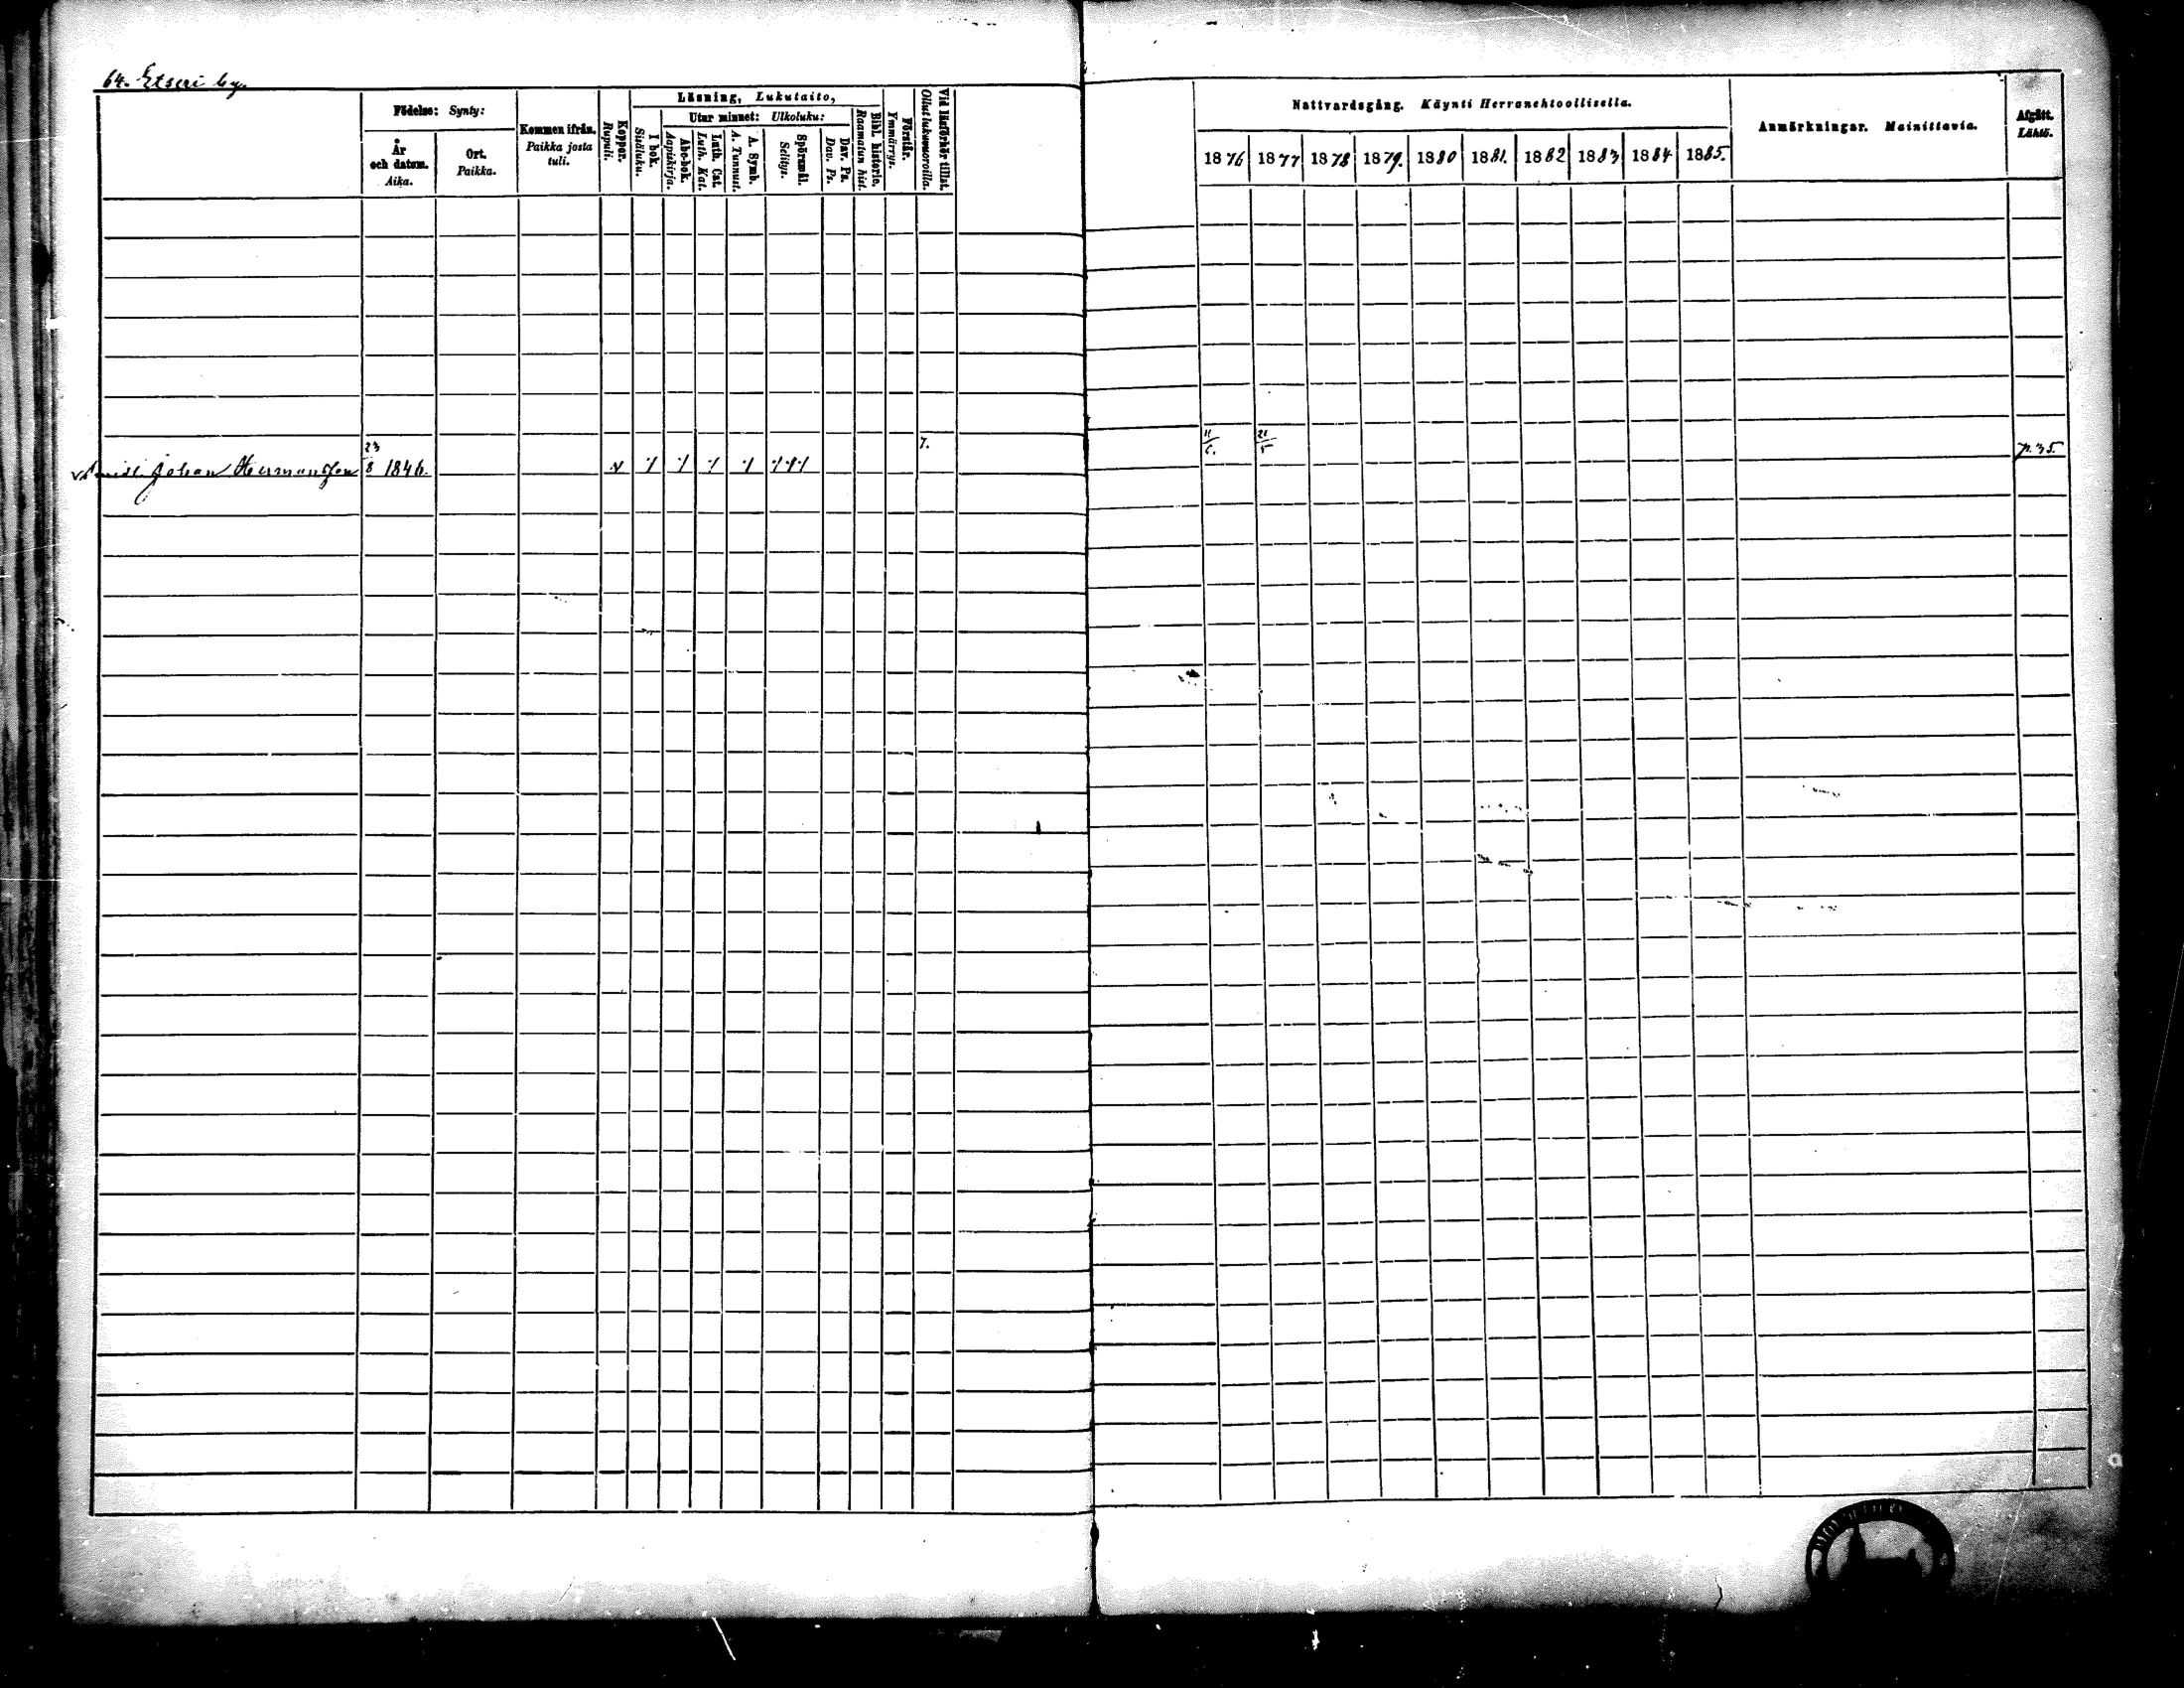 64. Etseri by.
Födelse: Synty:
År och datum. Aika.
Ort. Paikka.
Kommen ifrån. Paikka josta tuli.
Koppor. Rupuli.
Läsning, Lukutaito,
I bok. Sisäluku.
Utur minnet: Ulkoluku:
Abc-bok. Aapiskirja.
Luth. Cat. Luth. Kat.
A. Symb. A. Tunnust.
Spörsmål. Selitys.
Dav. Ps. Dav. Ps.
Bibl. historie. Raamatun hist.
Förstår. Ymmärrys.
Vid läsförhör tillst. Ollut lukuvuoroilla.
Nattvardsgång. Käynti Herranehtoollisella.
1876 1877 1878 1879. 1880 1881. 1882 1883 1884 1885.
Anmärkningar. Mainittavia.
Afgått. Lähtö.
Johan Hermansson 23/8 1846. 7. 11/6. 21/5 p. 35.